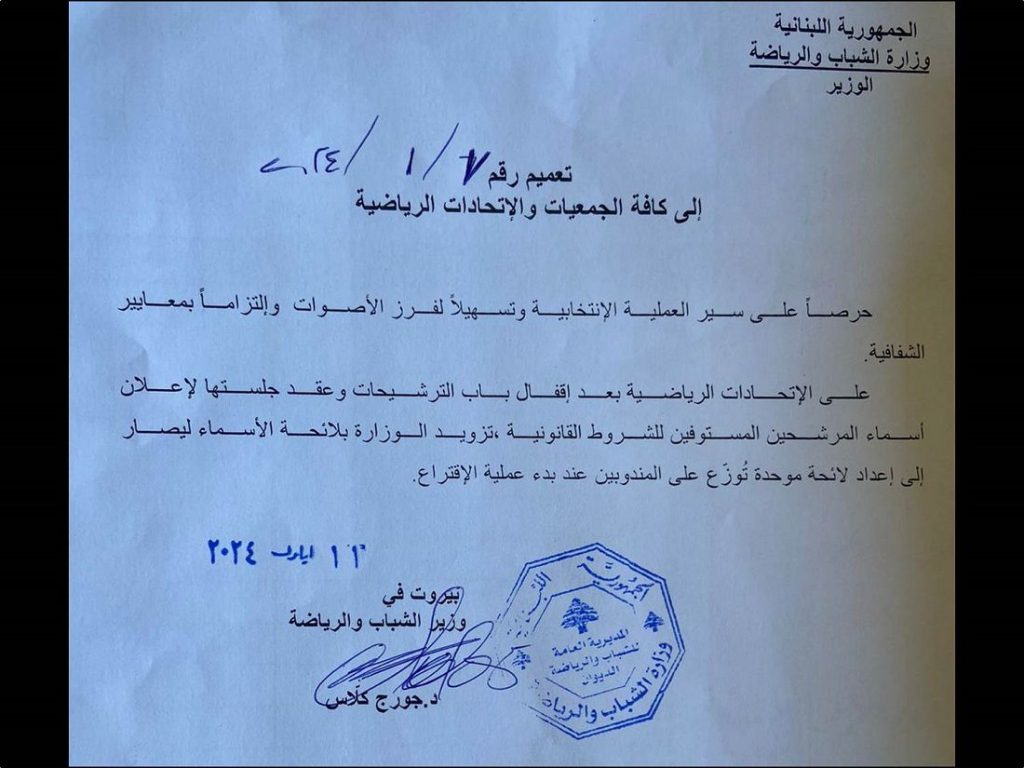 الجمهورية اللبنانية
وزارة الشباب والرياضة
الوزير
تعميم رقم ٧ / ١ / ٢٠٢٤
إلى كافة الجمعيات والإتحادات الرياضية
حرصاً على سير العملية الإنتخابية وتسهيلاً لفرز الأصوات وإلتزاماً بمعايير
الشفافية.
على الإتحادات الرياضية بعد إقفال باب الترشيحات وعقد جلستها لإعلان
أسماء المرشحين المستوفين للشروط القانونية ،تزويد الوزارة بلائحة الأسماء ليصار
إلى إعداد لائحة موحدة تُوزّع على المندوبين عند بدء عملية الإقتراع.
ايلول ٢٠٢٤
بيروت في
وزير الشباب والرياضة
د.جورج كلّاس
الجمهورية
المديرية العامة
للشباب والرياضة
الديوان
وزارة الشباب والرياضة